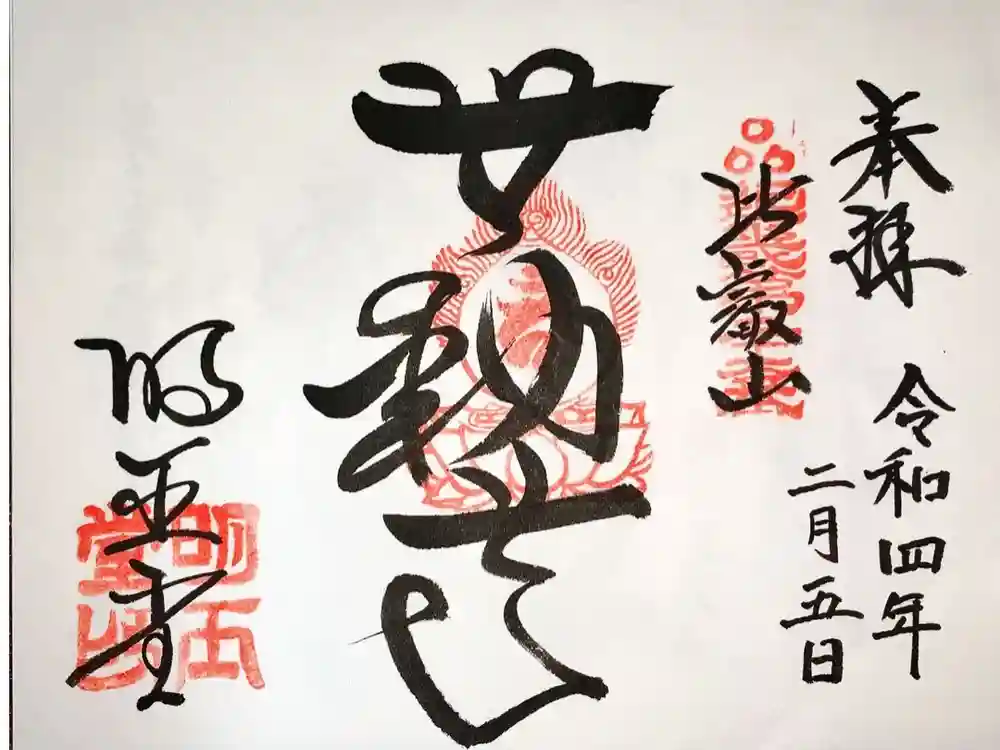 奉拝
令和四年
二月五日
比叡山
無動
明王堂
明王
堂印